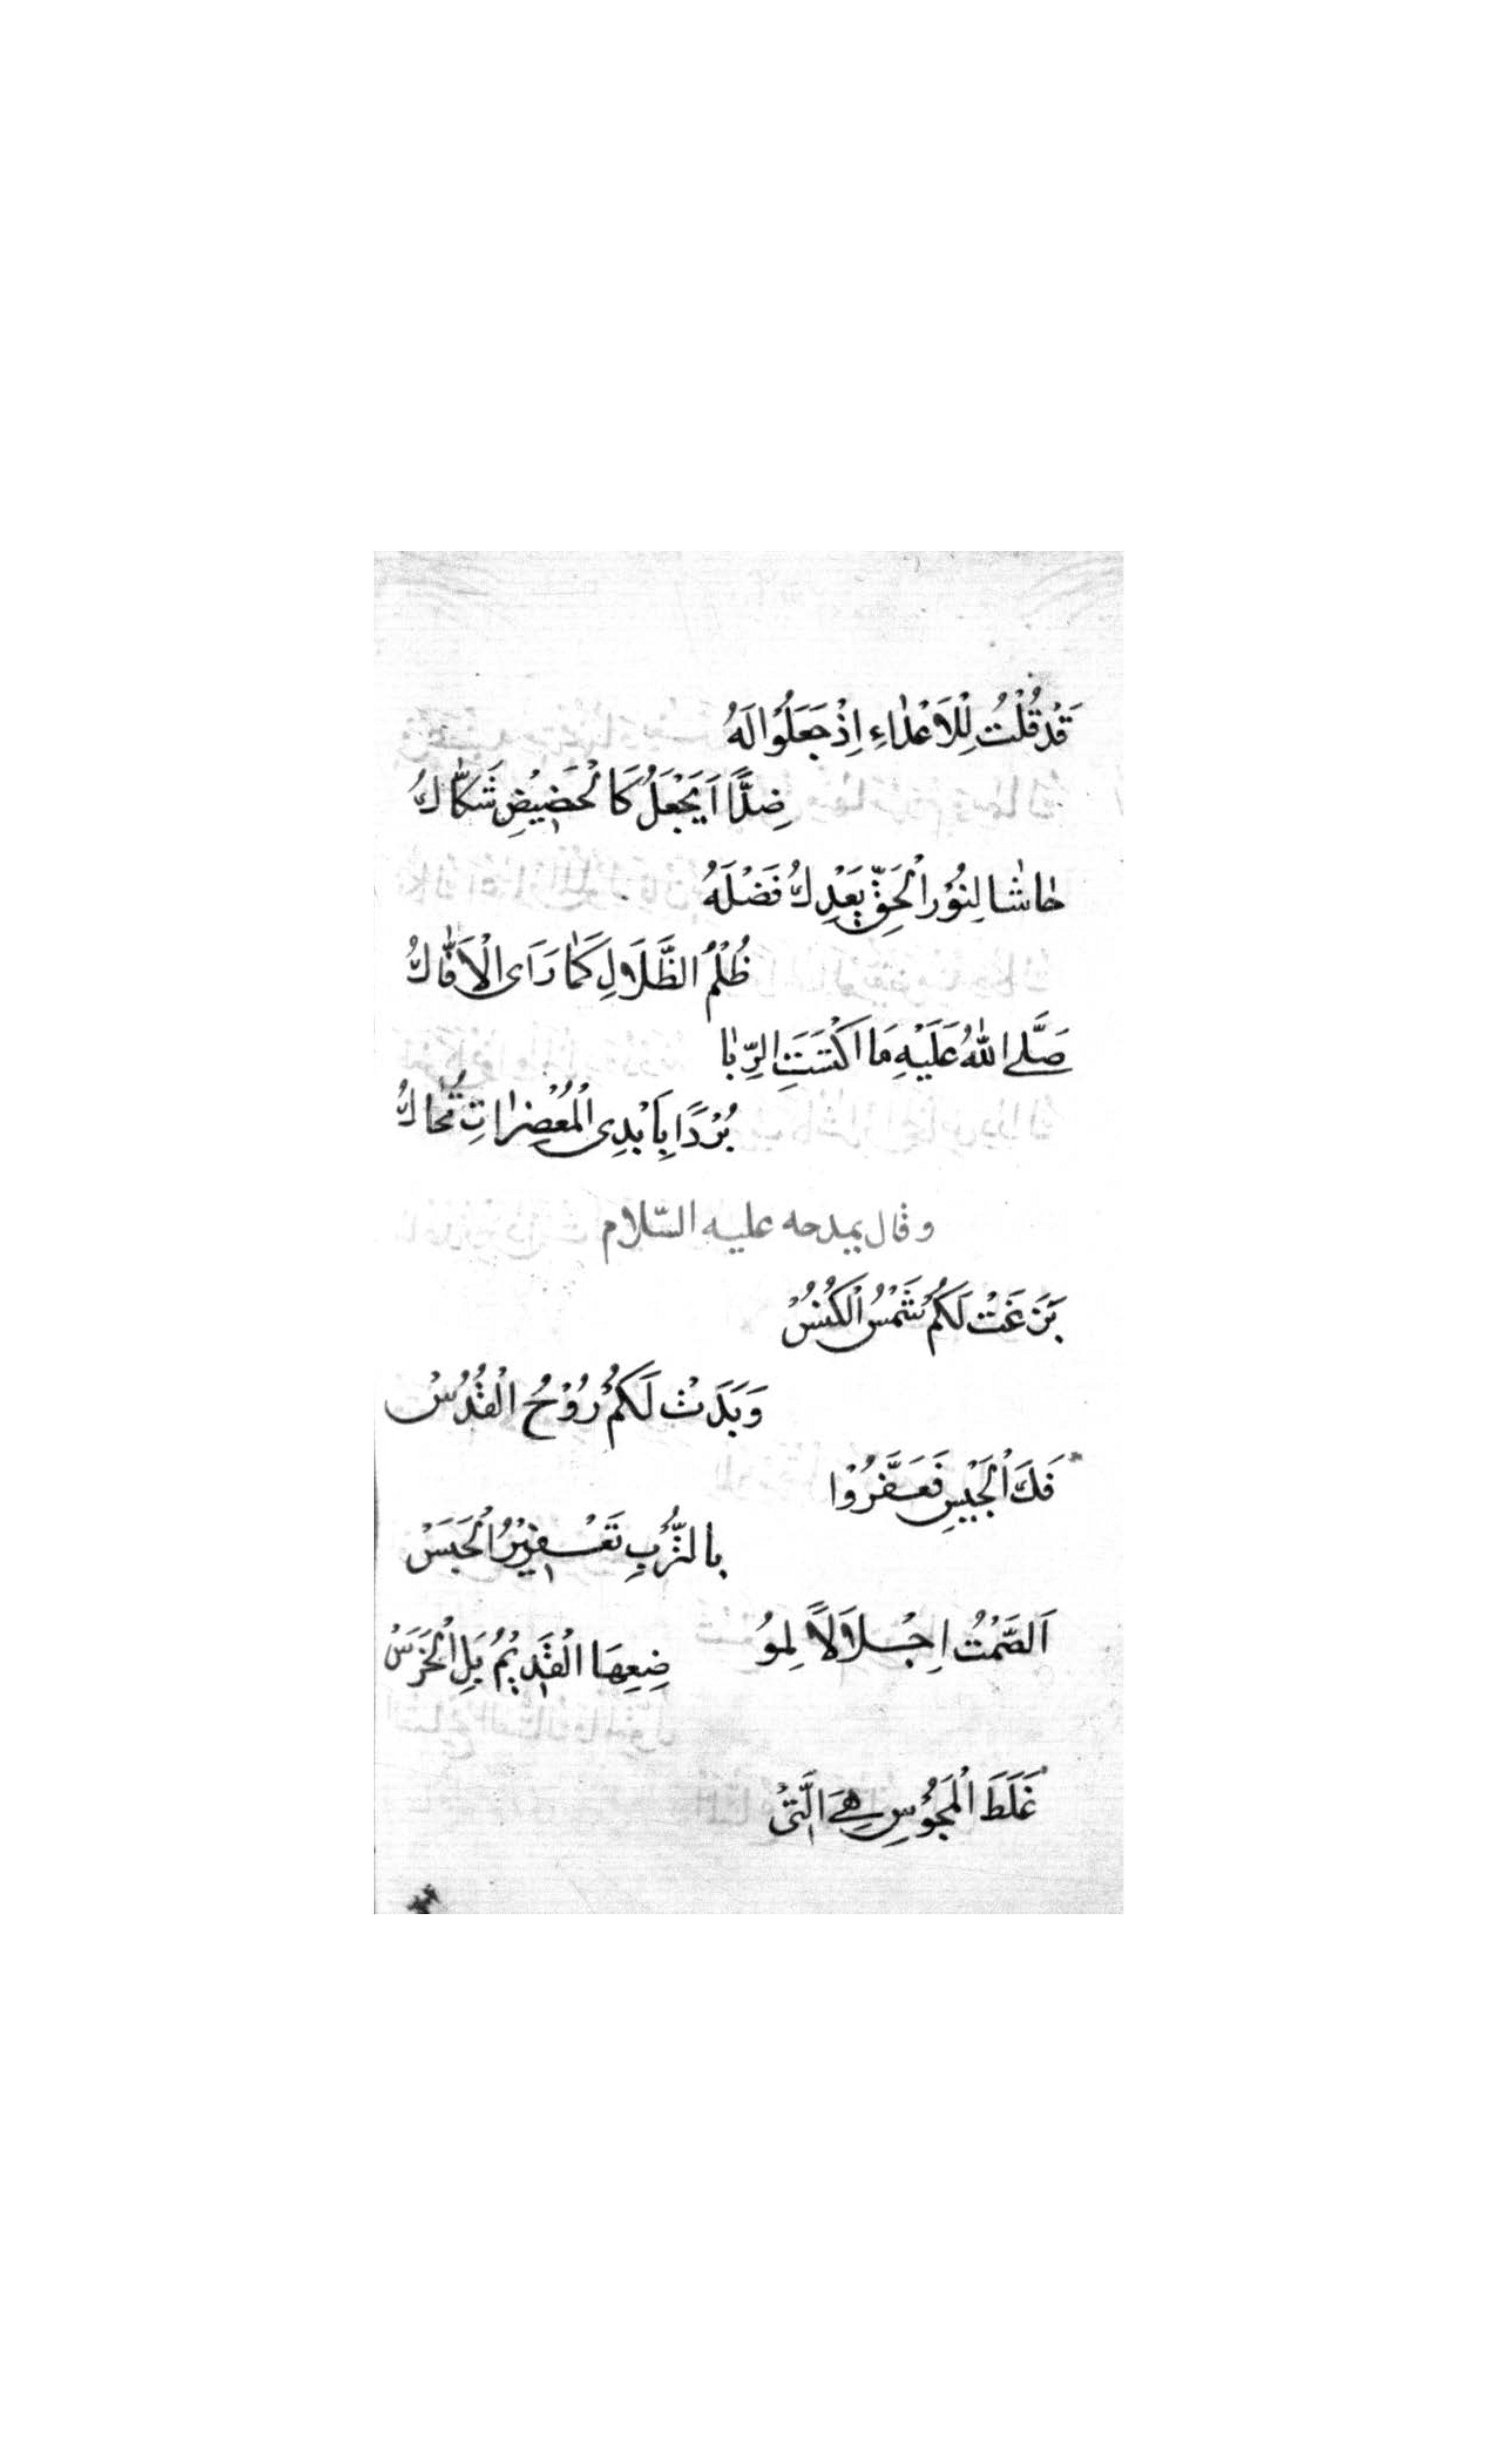 قَدْ قُلْتُ لِلْاَعْدَاءِ اِذْ جَعَلُوْا لَهُ
ضِدًّا اَيَجْعَلُ كَالْحَضِيْضِ شَكَاكُ
حَاشَا لِنُوْرِ الْحَقِّ يَعْدِكُ فَضْلَهُ
ظُلْمُ الظَّلَالِ كَمَا رَاَى الْاَفَّاكُ
صَلَّى اللهُ عَلَيْهِ مَا اكْتَسَتِ الرِّبَا
بُرْدًا بِاَيْدِى الْمُعْصِرَاتِ تُحَاكُ
وقال يمدحه عليه السّلام
بَزَغَتْ لَكُمْ شَمْسُ الْكُنُسْ
وَبَدَتْ لَكُمْ رُوْحُ الْقُدُسْ
فَكَّ الْحَبِيْسِ فَعَفَّرُوْا
بِالتُّرْبِ تَعْفِيْرُ الْحَبَسْ
اَلصَّمْتُ اِجْلَالًا لِمَوْ
ضِعِهَا الْقَدِيْمُ بَلِ الْخَرَسْ
غَلَطَ الْمَجُوْسِ هِىَ الَّتِىْ